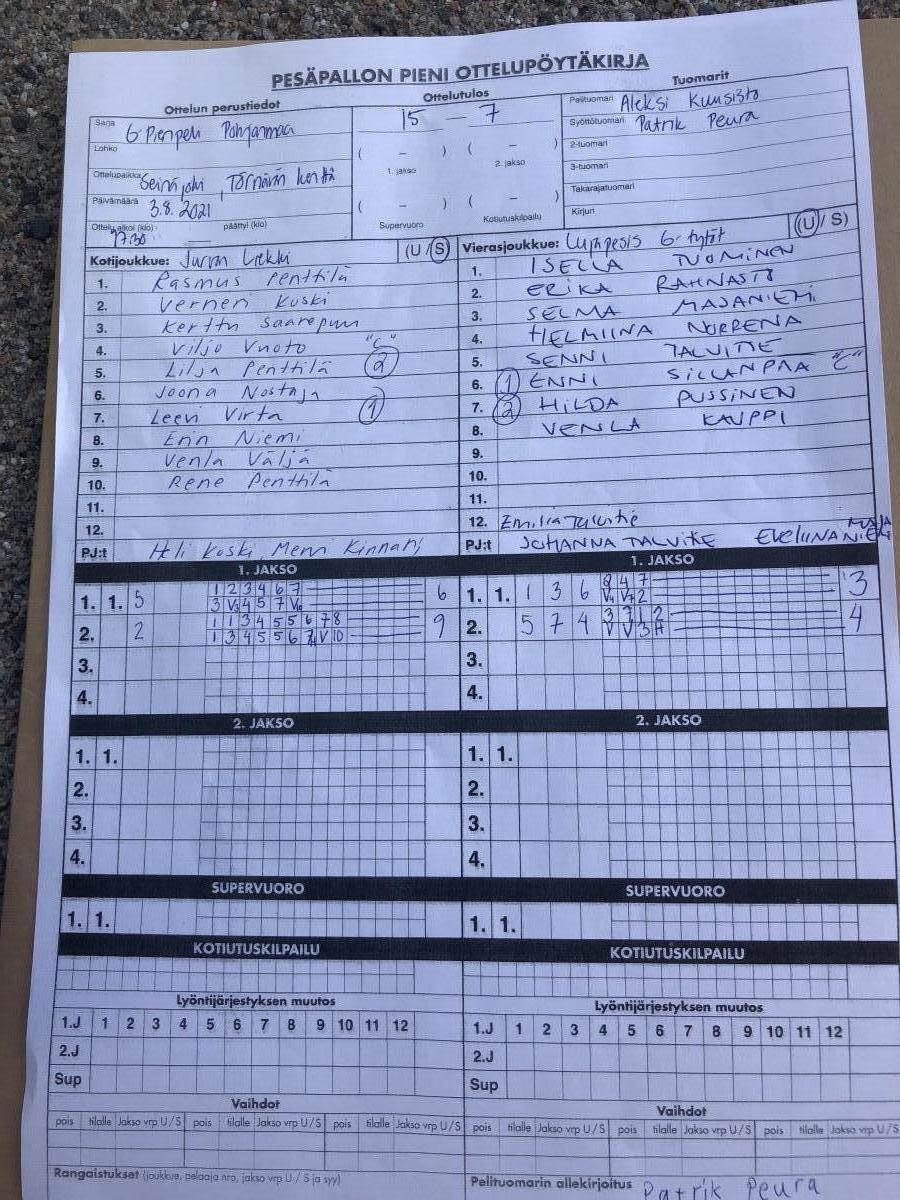 PESÄPALLON PIENI OTTELUPÖYTÄKIRJA
Ottelun perustiedot
Ottelutulos
Tuomarit
Sarja G Pienpeli Pohjanmaa
15 — 7
Pelituomari Aleksi Kuusisto
Lohko
( – ) ( – )
Syöttötuomari Patrik Peura
1. jakso 2. jakso
2-tuomari
Ottelupaikka Seinäjoki, Törnävän kenttä
3-tuomari
Päivämäärä 3.8.2021
( – ) ( – )
Takarajatuomari
Ottelu alkoi (klo) 17:30 päättyi (klo)
Supervuoro Kotiutuskilpailu
Kirjuri
Kotijoukkue: Jurvan Liekki (U/S)
1. Rasmus Penttilä
2. Verneri Koski
3. Kerttu Saarepuu
4. Viljo Vuoto "C"
5. Lilja Penttilä 2
6. Joona Nostaja
7. Leevi Virta 1
8. Erin Niemi
9. Venla Väljä
10. Rene Penttilä
11.
12.
PJ:t Heli Koski, Mervi Kinnari
Vierasjoukkue: Lupapesis G-tytöt (U/S)
1. ISELLA TUOMINEN
2. ERIKA RAHNASTO
3. SELMA MAJANIEMI
4. HELMIINA NORRENA
5. SENNI TALVITIE
6. 1 ENNI SILLANPÄÄ "C"
7. 2 HILDA PUSSINEN
8. VENLA KAUPPI
9.
10.
11.
12. Emilia Talvitie
PJ:t JOHANNA TALVITIE EVELIINA MAJANIEMI
1. JAKSO
1. 1. 5 1 2 3 4 6 7 6
3 V3 4 5 7 V6
2. 2 1 1 3 4 5 5 6 7 8 9
1 3 4 5 5 6 7 V 10
3.
4.
1. JAKSO
1. 1. 1 3 6 8 4 7 3
V4 V7 2
2. 5 7 4 3 7 1 2 4
V V 3 H
3.
4.
2. JAKSO
1. 1.
2.
3.
4.
2. JAKSO
1. 1.
2.
3.
4.
SUPERVUORO
1. 1.
SUPERVUORO
1. 1.
KOTIUTUSKILPAILU
KOTIUTUSKILPAILU
Lyöntijärjestyksen muutos
1.J 1 2 3 4 5 6 7 8 9 10 11 12
2.J
Sup
Lyöntijärjestyksen muutos
1.J 1 2 3 4 5 6 7 8 9 10 11 12
2.J
Sup
Vaihdot
pois tilalle Jakso vrp U/S pois tilalle Jakso vrp U/S pois tilalle Jakso vrp U/S
Vaihdot
pois tilalle Jakso vrp U/S pois tilalle Jakso vrp U/S pois tilalle
Rangaistukset (joukkue, pelaaja nro, jakso vrp U / S ja syy)
Pelituomarin allekirjoitus Patrik Peura